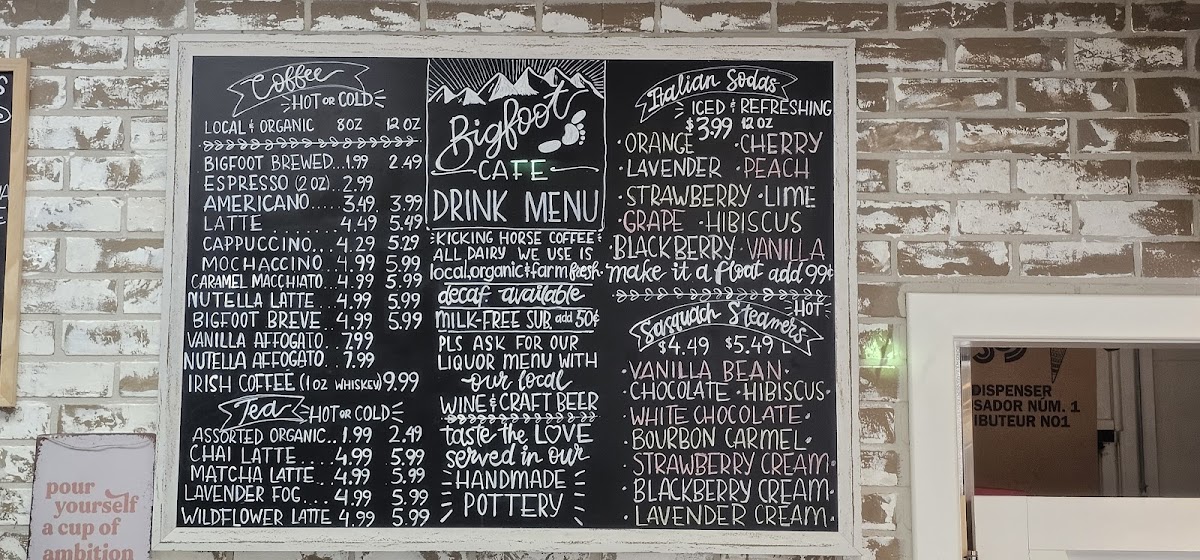 Coffee
HOT OR COLD
LOCAL & ORGANIC 8OZ 12 OZ
BIGFOOT BREWED..1.99 2.49
ESPRESSO (2 OZ)..2.99
AMERICANO.....3.49 3.99
LATTE ..... 4.49 5.49
CAPPUCCINO...4.29 5.29
MOCHACCINO.. 4.99 5.99
CARAMEL MACCHIATO...4.99 5.99
NUTELLA LATTE..4.99 5.99
BIGFOOT BREVE..4.99 5.99
VANILLA AFFOGATO..7.99
NUTELLA AFFOGATO..7.99
IRISH COFFEE (1 OZ WHISKEY) 9.99
Tea HOT OR COLD
ASSORTED ORGANIC..1.99 2.49
CHAI LATTE.....4.99 5.99
MATCHA LATTE...4.99 5.99
LAVENDER FOG....4.99 5.99
WILDFLOWER LATTE 4.99 5.99
Bigfoot
CAFE
DRINK MENU
KICKING HORSE COFFEE
ALL DAIRY WE USE IS
local, organic & farm fresh.
decaf available
MILK-FREE SUB. add 50¢
PLS ASK FOR OUR
LIQUOR MENU WITH
our local
WINE & CRAFT BEER
taste the LOVE
served in our
HANDMADE
POTTERY
Italian Sodas
ICED & REFRESHING
$3.99 12 OZ
ORANGE · CHERRY
· LAVENDER · PEACH
· STRAWBERRY · LIME
GRAPE · HIBISCUS
· BLACKBERRY · VANILLA
make it a float add 99¢
HOT
Sasquach Steamers
$4.49 $5.49 L
· VANILLA BEAN ·
CHOCOLATE · HIBISCUS ·
· WHITE CHOCOLATE ·
· BOURBON CARMEL ·
· STRAWBERRY CREAM ·
· BLACKBERRY CREAM ·
· LAVENDER CREAM ·
pour
yourself
a cup of
ambition
DISPENSER
SADOR NÚM. 1
IBUTEUR NO1